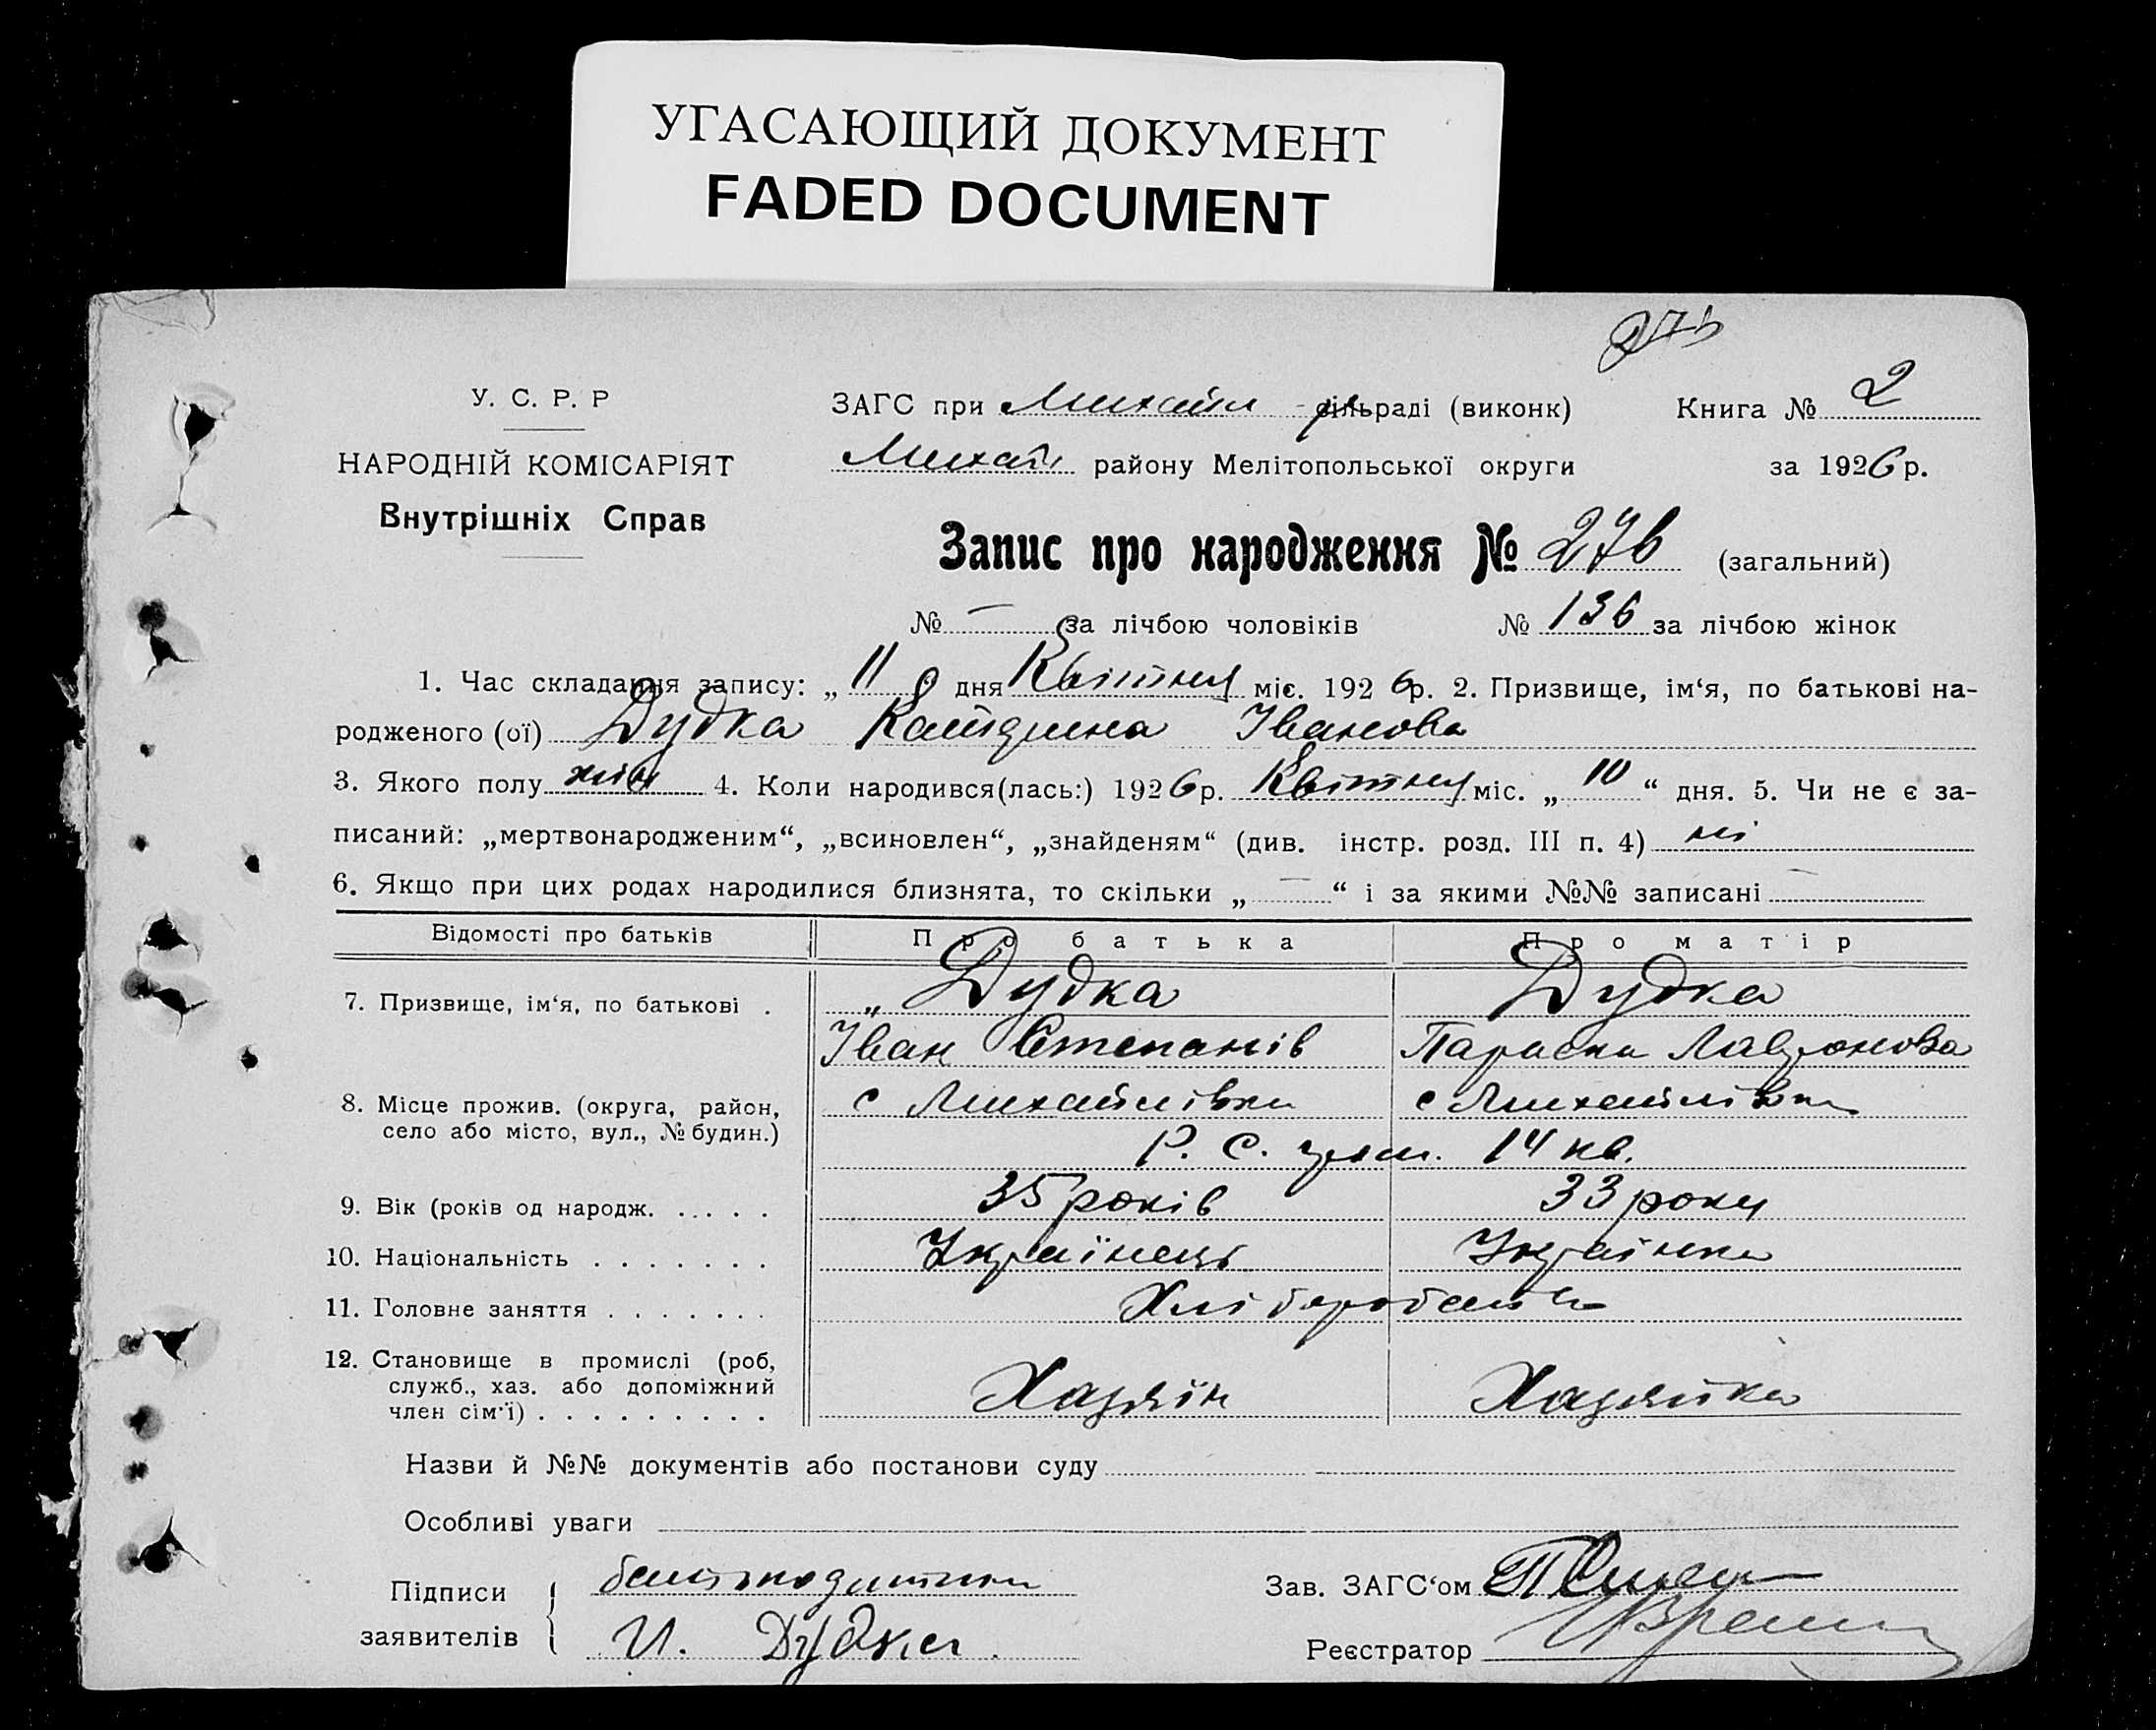 УГАСАЮЩИЙ ДОКУМЕНТ
FADED DOCUMENT
У. С. Р. Р
НАРОДНІЙ КОМІСАРІЯТ
Внутрішніх Справ
ЗАГС при Михайл - сільраді (виконк) Книга № 2
Михайл району Мелітопольської округи за 1926 р.
Запис про народження № 276 (загальний)
№ — за лічбою чоловіків № 136 за лічбою жінок
1. Час складання запису: „ 11 дня Квітня міс. 1926 р. 2. Призвище, ім‘я, по батькові на-
родженого (ої) Дудка Катярина Іванова
3. Якого полу жін 4. Коли народився(лась:) 1926 р. Квітня міс. „ 10 “ дня. 5. Чи не є за-
писаний: „мертвонародженим“, „всиновлен“, „знайденям“ (див. інстр. розд. III п. 4) ні
6. Якщо при цих родах народилися близнята, то скільки „ — “ і за якими №№ записані —
Відомості про батьків Про батька Про матір
7. Призвище, ім‘я, по батькові . „ Дудка Дудка
Іван Степанів Параска Лавронова
8. Місце прожив. (округа, район, с Михайлівки с Михайлівки
село або місто, вул., № будин.) Р. С. 14 кв.
9. Вік (років од народж. . . . . . 35 років 33 роки
10. Національність . . . . . . . Українець Українка
11. Головне заняття . . . . . . . Хліборобство
12. Становище в промислі (роб,
служб., хаз. або допоміжний Хазяїн Хазяйка
член сім‘ї) . . . . . . . . .
Назви й №№ документів або постанови суду
Особливі уваги
Підписи батько дитини Зав. ЗАГС‘ом
заявителів И. Дудка Реєстратор